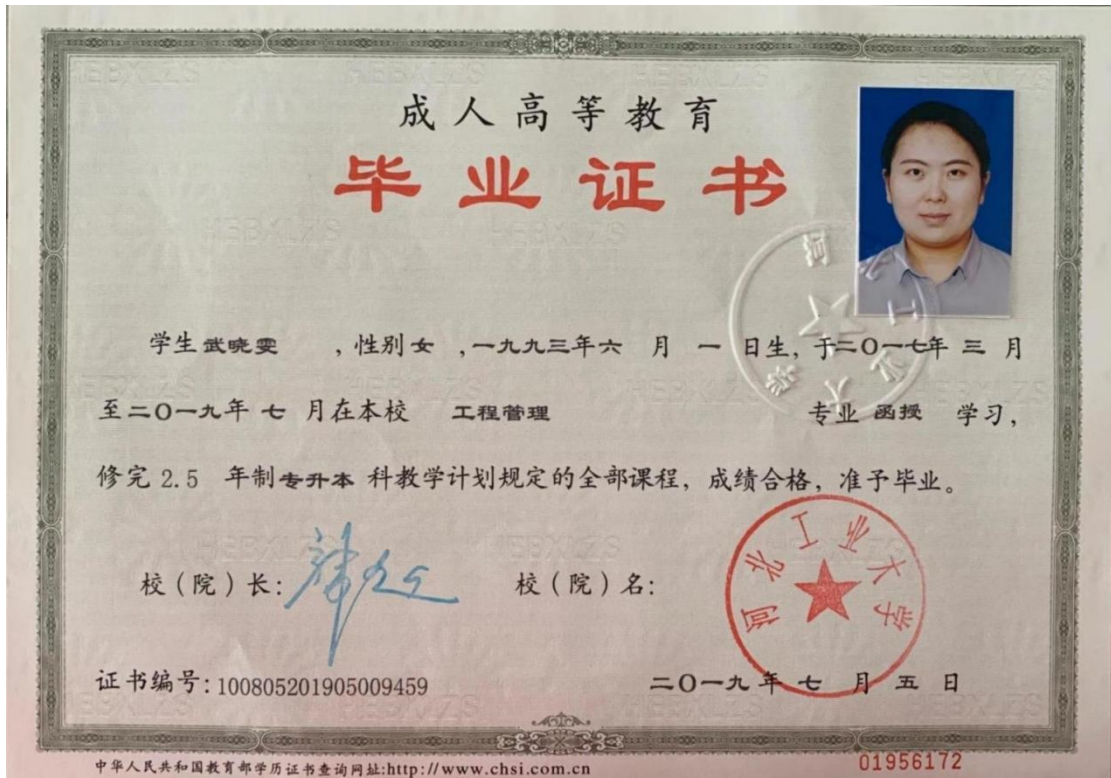 成人高等教育
毕业证书
学生 武晓雯 ，性别 女 ，一九九三年 六 月 一 日生，于二〇一七年 三 月
至二〇一九年 七 月在本校 工程管理 专业 函授 学习，
修完 2.5 年制 专升本 科教学计划规定的全部课程，成绩合格，准予毕业。
校（院）长： 校（院）名：
河北工业大学
证书编号：100805201905009459 二〇一九年 七 月 五 日
中华人民共和国教育部学历证书查询网址:http://www.chsi.com.cn 01956172